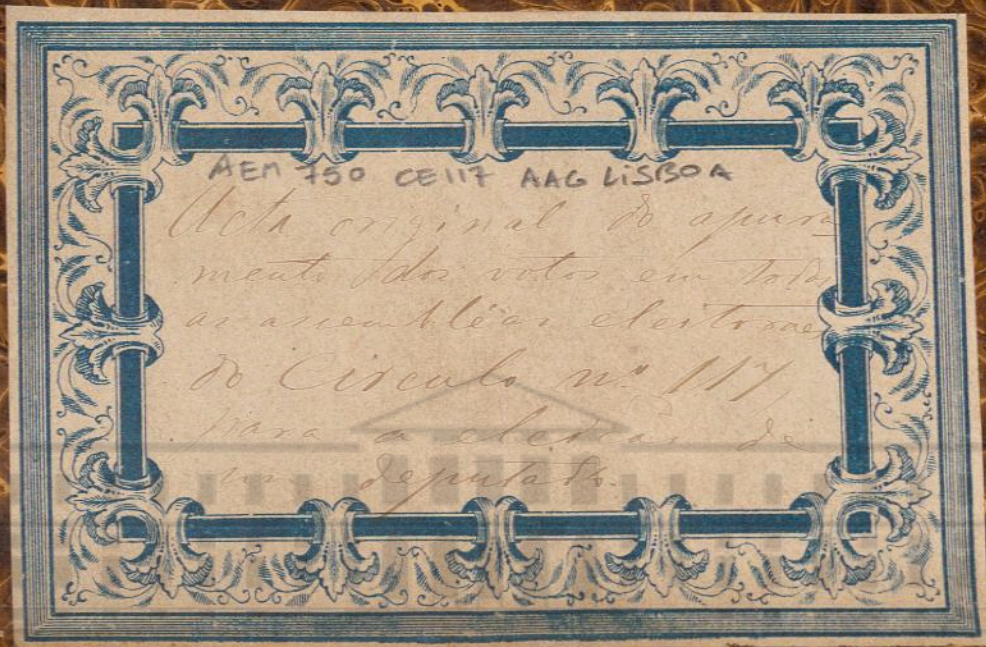 AEM 750 CE117 AAG LiSBOA
Acta original do apura
mento dos votos em todas
as assembléas eleitoraes
do Circulo nº 117
para a eleição de
um deputado.